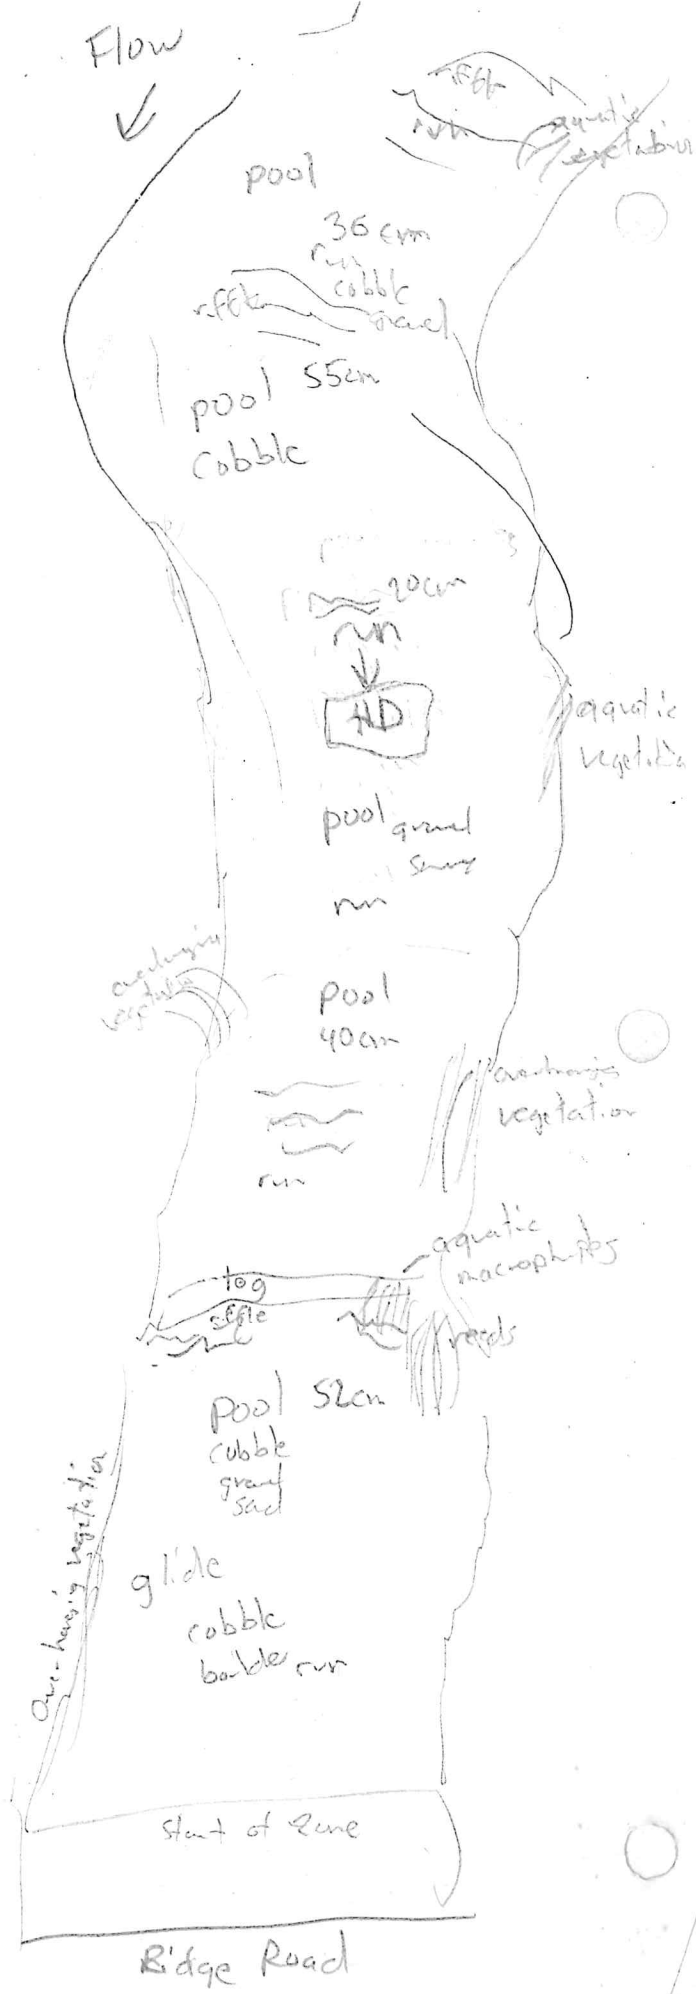 Flow
riffle
run
aquatic
vegetation
pool
36 cm
run
cobble
gravel
riffle
pool 55cm
cobble
20cm
run
HD
aquatic
vegetatin
pool gravel
run
overhanging
vegetation
pool
40cm
overhanging
vegetation
run
aquatic
macrophytes
log
riffle
reeds
pool 52cm
cobble
gravel
sad
Overhanging vegetation
glide
cobble
boulder run
start of zone
Bidge Road